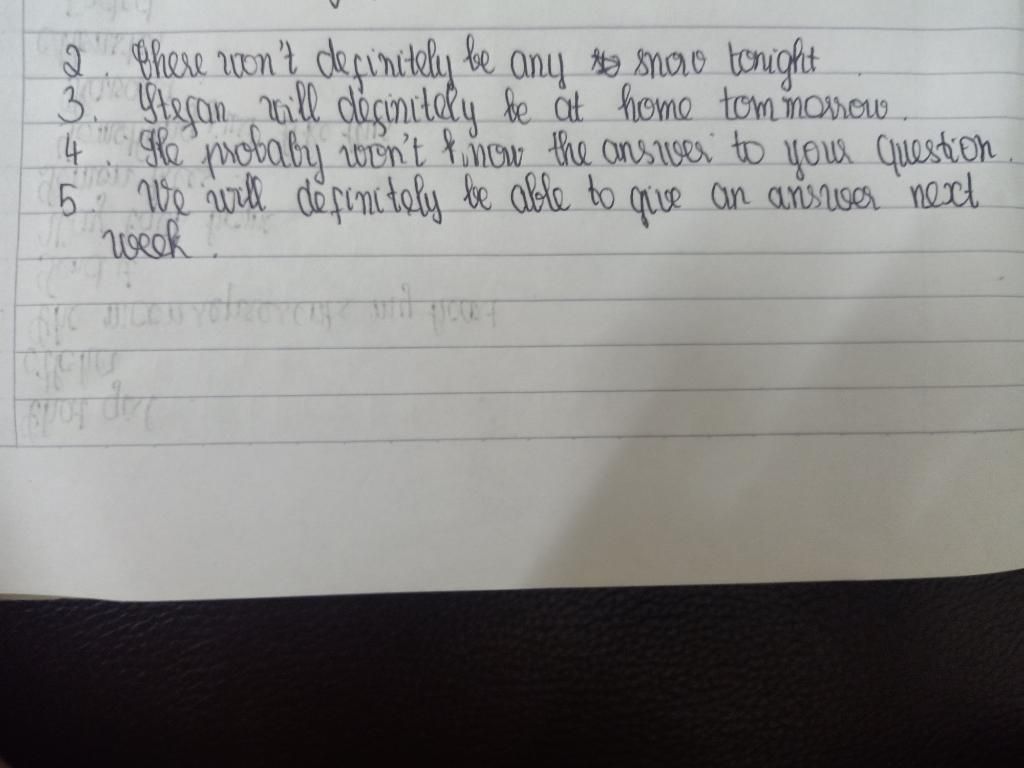 2. There won't definitely be any snow tonight
3. Stefan will definitely be at home tommorrow.
4. He probaby won't know the answer to your question.
5. We will definitely be able to give an answer next
week.